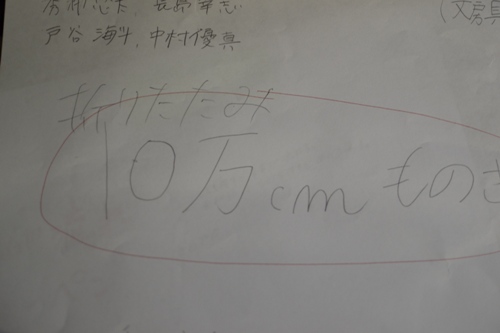 戸谷 海斗、中村優真
(文房具
折りたたみ
10万cmものさ